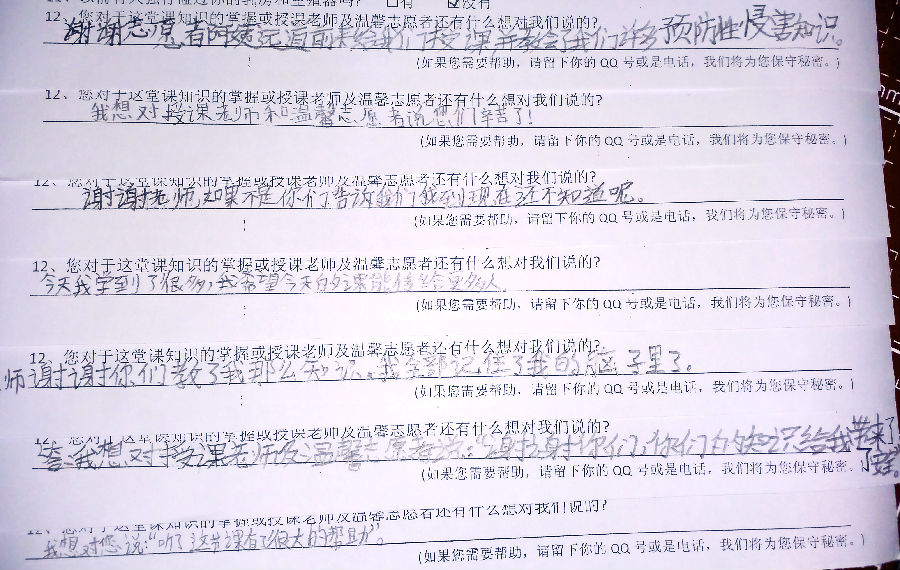 □有 ☑没有
12、您对于这堂课知识的掌握或授课老师及温馨志愿者还有什么想对我们说的?
谢谢志愿者阿姨远道前来给我们供受课,并教会了我们许多预防性侵害知识。
(如果您需要帮助,请留下你的 QQ 号或是电话,我们将为您保守秘密。)
12、您对于这堂课知识的掌握或授课老师及温馨志愿者还有什么想对我们说的?
我想对授课老师和温馨志愿者说您们辛苦了!
(如果您需要帮助,请留下你的 QQ 号或是电话,我们将为您保守秘密。)
12、您对于这堂课知识的掌握或授课老师及温馨志愿者还有什么想对我们说的?
谢谢老师,如果不是你们告诉我们我到现在还不知道呢。
(如果您需要帮助,请留下你的 QQ 号或是电话,我们将为您保守秘密。)
12、您对于这堂课知识的掌握或授课老师及温馨志愿者还有什么想对我们说的?
今天我学到了很多,我希望今天的课能传给更多人。
(如果您需要帮助,请留下你的 QQ 号或是电话,我们将为您保守秘密。)
12、您对于这堂课知识的掌握或授课老师及温馨志愿者还有什么想对我们说的?
师谢谢你们教了我那么知识。我全部记住了我的脑子里了。
(如果您需要帮助,请留下你的 QQ 号或是电话,我们将为您保守秘密。)
12、您对于这堂课知识的掌握或授课老师及温馨志愿者还有什么想对我们说的?
答:我想对授课老师及温馨志愿者说:“谢谢你们,你们的知识给我带来了
(如果您需要帮助,请留下你的 QQ 号或是电话,我们将为您保守秘密。)
12、您对于这堂课知识的掌握或授课老师及温馨志愿者还有什么想对我们说的?
我想对您说:“听了这节课有了很大的帮助”。
(如果您需要帮助,请留下你的 QQ 号或是电话,我们将为您保守秘密。)